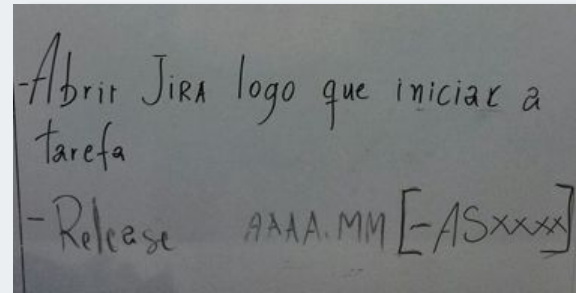 -Abrir JIRA logo que iniciar a
tarefa
-Release AAAA.MM [-ASxxxx]